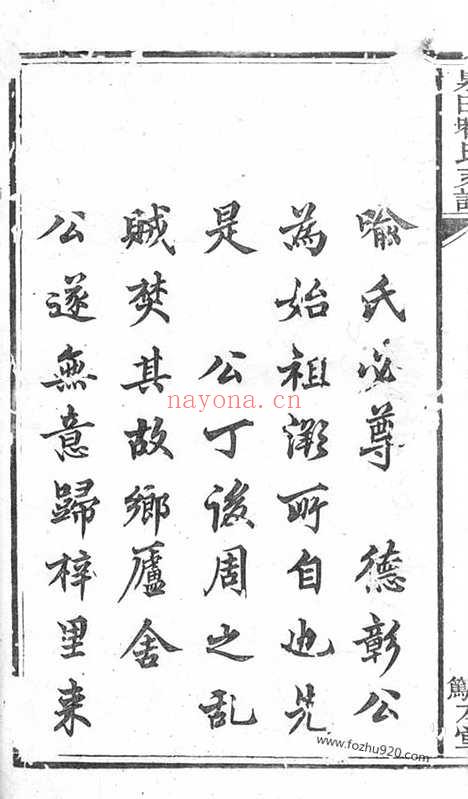 喻氏必尊　德彰公
為始祖泝所自也先
是　公丁後周之乱
賊焚其故鄉廬舍
公遂無意歸梓里来
nayona.cn
www.fozhu920.com